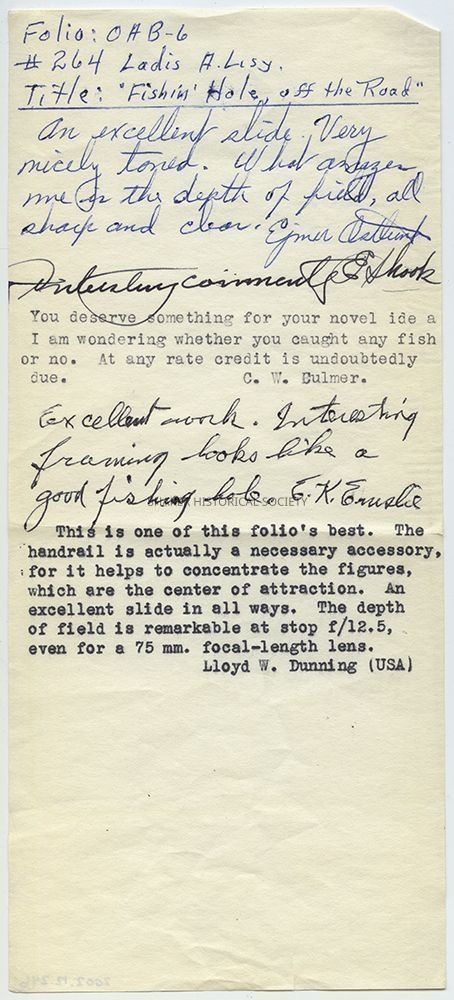 Folio: OAB-6
# 264 Ladis A. Lisy.
Title: "Fishin' Hole, off the Road"
An excellent slide. Very
nicely toned. What amazes
me is the depth of field, all
sharp and clear. Ejnar
Interesting comment Shook
You deserve something for your novel ide a
I am wondering whether you caught any fish
or no. At any rate credit is undoubtedly
due. C. W. Bulmer.
Excellent work. Interesting
framing looks like a
good fishing hole. E. K. Emslie
HISTORICAL SOCIETY
This is one of this folio's best. The
handrail is actually a necessary accessory,
for it helps to concentrate the figures,
which are the center of attraction. An
excellent slide in all ways. The depth
of field is remarkable at stop f/12.5,
even for a 75 mm. focal-length lens.
Lloyd W. Dunning (USA)